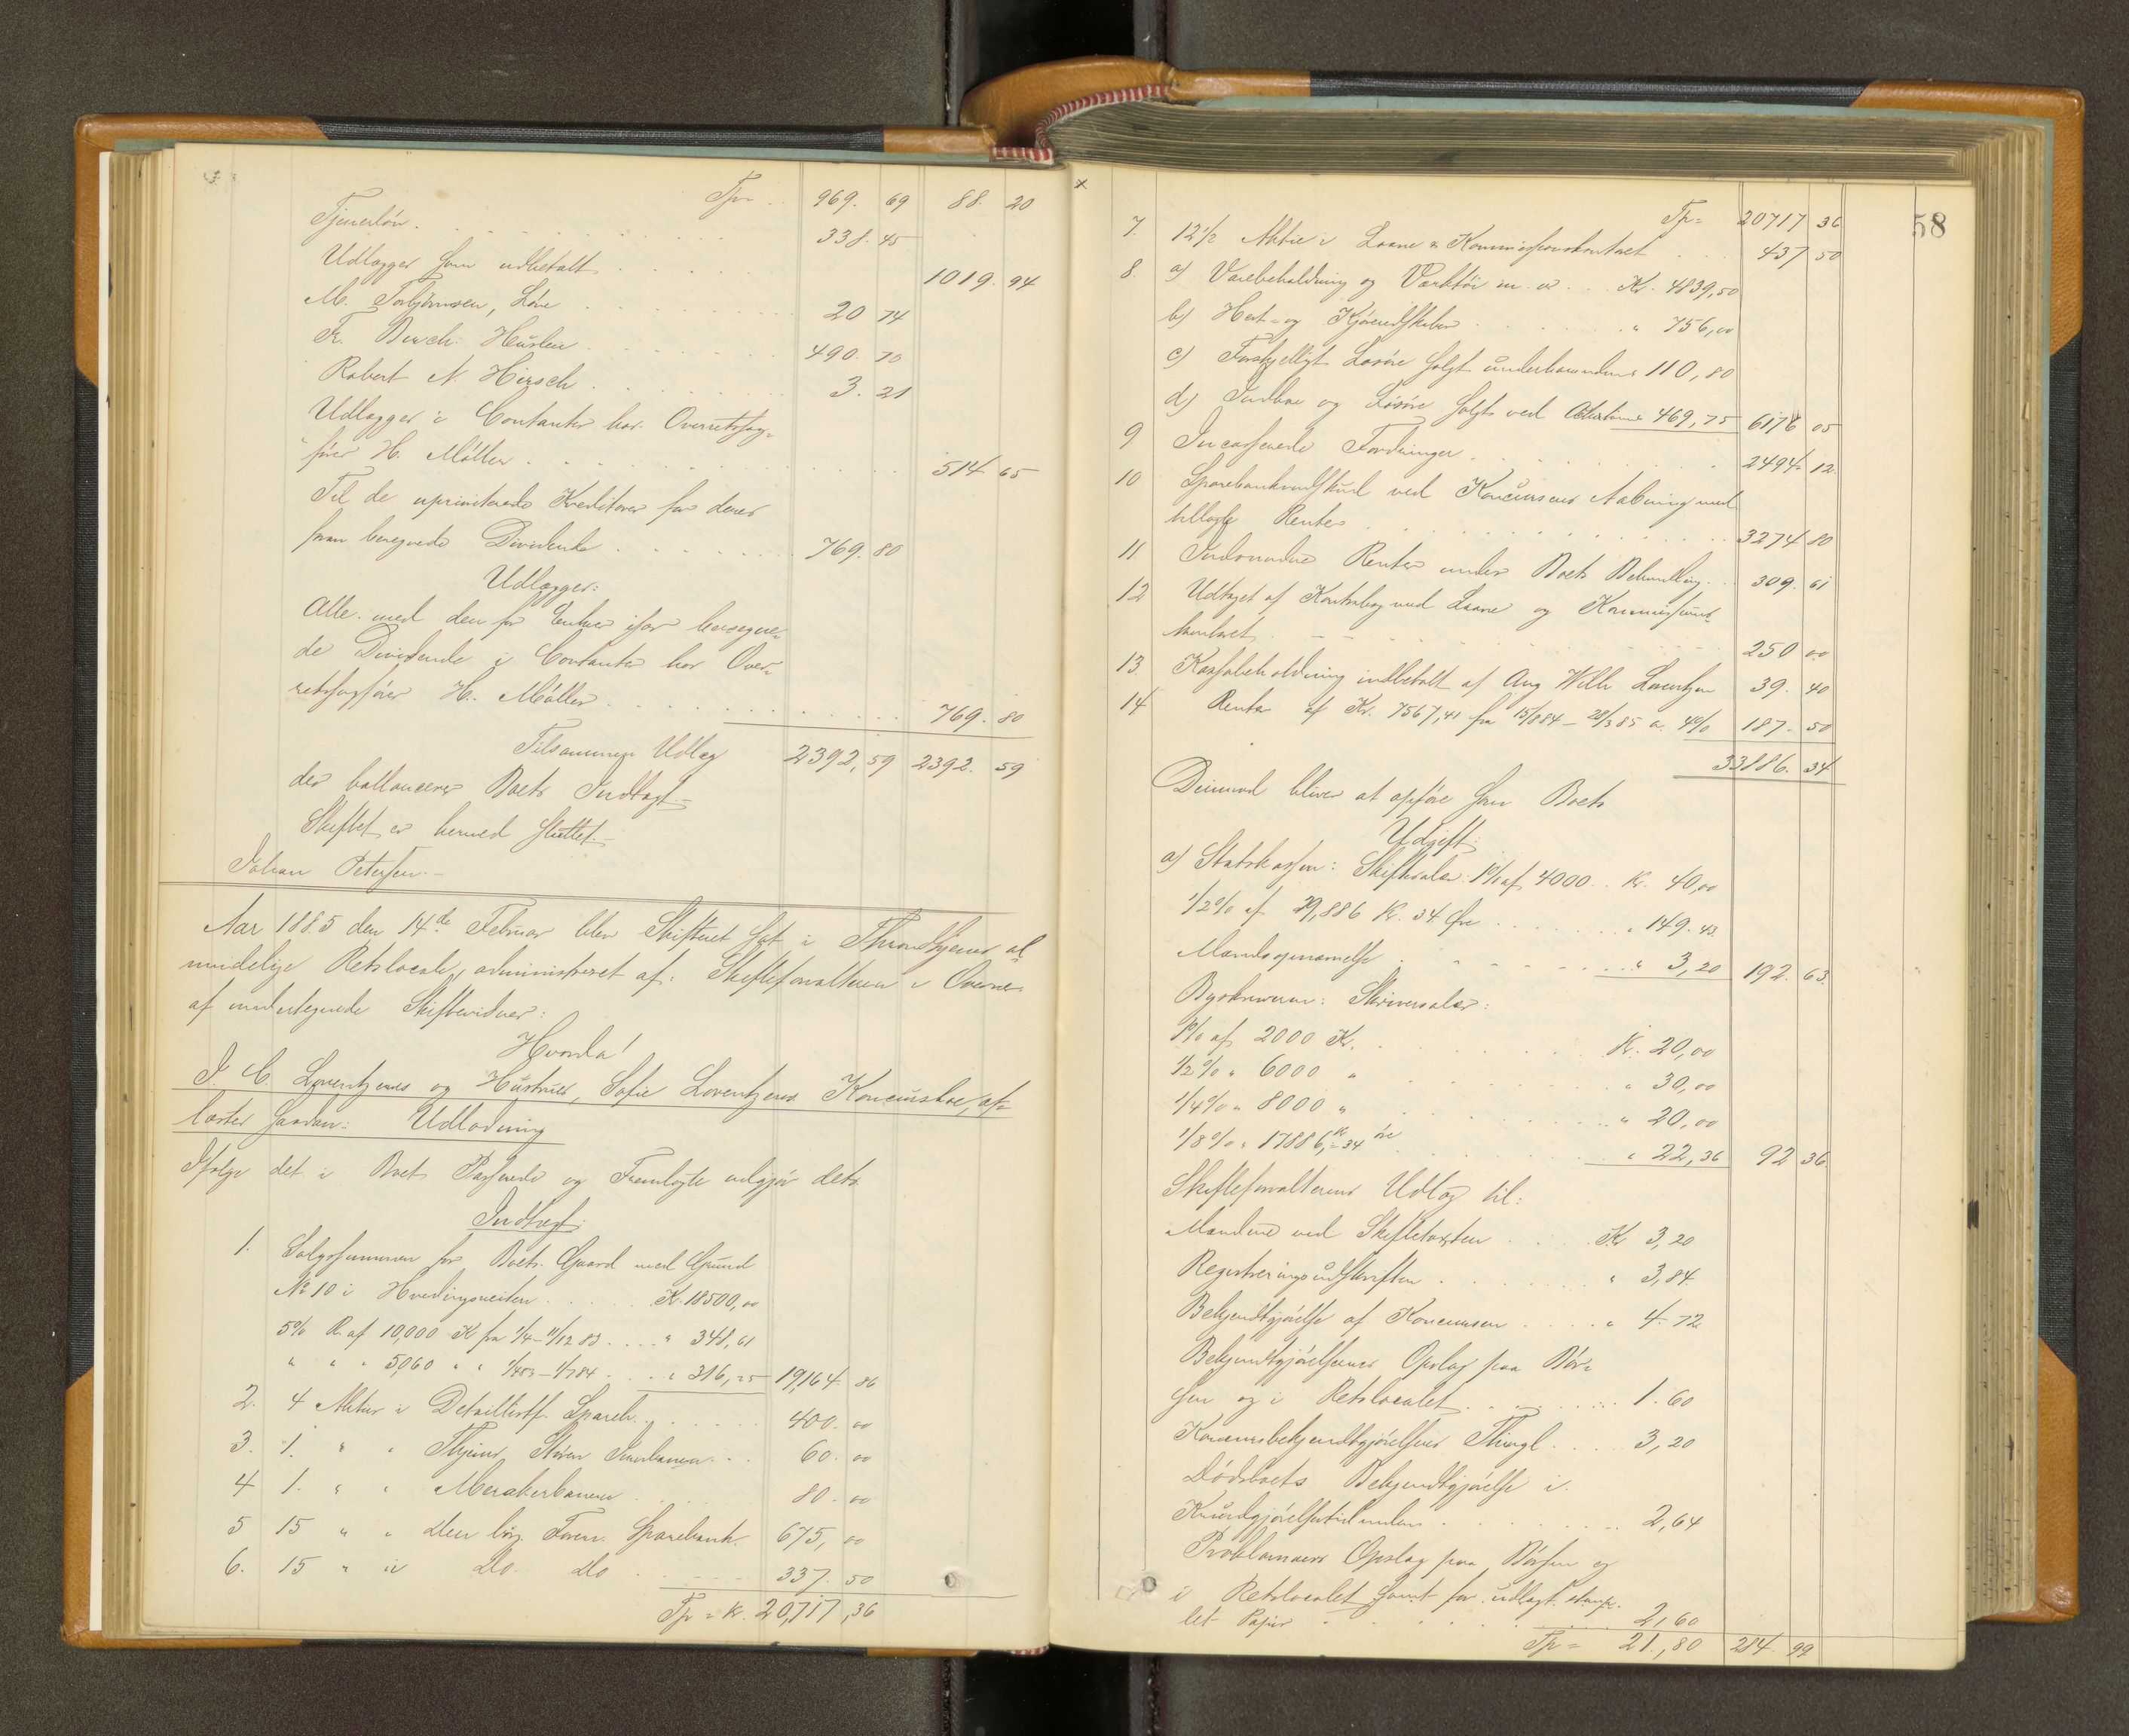 Tpr. 969. 69 88. 20
Tjenerløn. 338. 45
Udlægger som udbetalt 1019. 94
M. Torbjørnsen, Løn 20 74
Fr. Busch. Husleie 490. 70
Robert N. Hirsch 3. 21
Udlægger i Contanter hos Overretssag-
fører H. Møller 514 65
Til de uprioriterede Kreditorer for deres
foran beregnede Dividende 769. 80
Udlægges:
Alle med den for Enhver især beregne-
de Dividende i Contanter hos Over-
retssagfører H. Møller 769. 80
Tilsammen Udlæg 2392,59 2392. 59
der ballancerer Boets Indtægt.-
Skiftet er hermed sluttet.-
Johan Petersen.-
Aar 1885 den 14de Februar blev Skifteret sat i Throndhjems al-
mindelige Retslocale, administreret af Skifteforvalteren i Overvær
af undertegnede Skiftevidner:
Hvorda!
J. C. Lorentzens og Hustrues, Sofie Lorentzens Koncursboe, af-
lastes saadan: Udlodning
Ifølge det i Boet Passerede og Fremlagte udgjør dets
Indtægt:
1. Salgssummen for Boets Gaard med Grund
No 10 i Hvedingsveiten K. 18500,00
5% R. af 10,000 K fra 1/4-11/12 83 " 348,61
" " " 5060 " " 1/483-1/784 " 316,25 19,164. 86
2. 4 Aktier i Detaillistf. Spareb. 400. 00
3. 1. " " Thjems Støren Jernbanen 60. 00
4 1. " " Merakerbanen 80. 00
5 15 " " den borg. Foren. Sparebank. 675, 00
6. 15 " " do do 337. 50
Tpr = K. 20,717,36
58
Tpr= 20717 36
7. 12 1/2 Aktie i Laane & Kommissionskontoret 437 50
8. a) Varebeholdning og Værktøi m. v. Kr. 4839,50
b) Hest- og Kjøreredskaber " 756,00
c) Forskjelligt Løsøre solgt underhaanden " 110,80
d) Indbo og Løsøre solgt ved Auktion " 469,75 6176 05
9 Incasserede Fordringer 2494 12.
10 Sparebankindskud ved Koncursens Aabning med
tillagte Renter 3274 80
11 Indvundne Renter under Boets Behandling 309. 61
12 Udtaget af Kontrabog med Laane og Kommissions-
kontoret 250 00
13. Kassabeholdning indbetalt af Aug Wilh Lorentzen 39. 40
14 Renter af Kr. 7567,41 fra 15/884-28/385 a 4% 187. 50
33886. 34
Derimod bliver at opføre som Boets
Udgift:
a) Statskassen: Skiftesalær: 1% af 4000 Kr. 40,00
1/2% af 29,886 Kr. 34 Øre " 149. 43.
Mandsopnævnelse " 3,20 192. 63.
Byskriveren: Skriversalær:
1% af 2000 Kr. Kr. 20,00
1/2% " 6000 " " 30,00
1/4% " 8000 " " 20,00
1/8% " 17886 Kr 34 øre " 22,36 92 36.
Skifteforvalterens Udlæg til:
Mændene ved Skiftetaxten Kr 3,20
Registreringsudskriften " 3,84
Bekjendtgjørelse af Koncursen " 4.72
Bekjendtgjørelsernes Opslag paa Bør-
sen og i Retslocalet 1.60
Koncursbekjendtgjørelsens Thingl. 3,20
Dødsboets Bekjendtgjørelse i
Kundgjørelsestidenden 2,64
Proklamaens Opslag paa Børsen og
i Retslocalet samt for udlagt stemp-
let Papir 2,60
Tpr = 21,80 284. 99